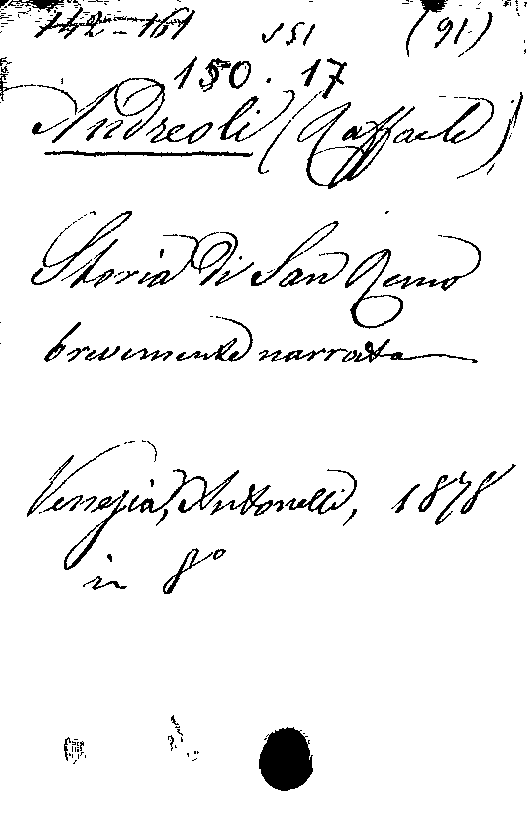 142-161 151 (91)
150.17
Andreoli (Raffaele)
Storia di San Remo
brevemente narrata
Venezia, Antonelli, 1878
in 8°